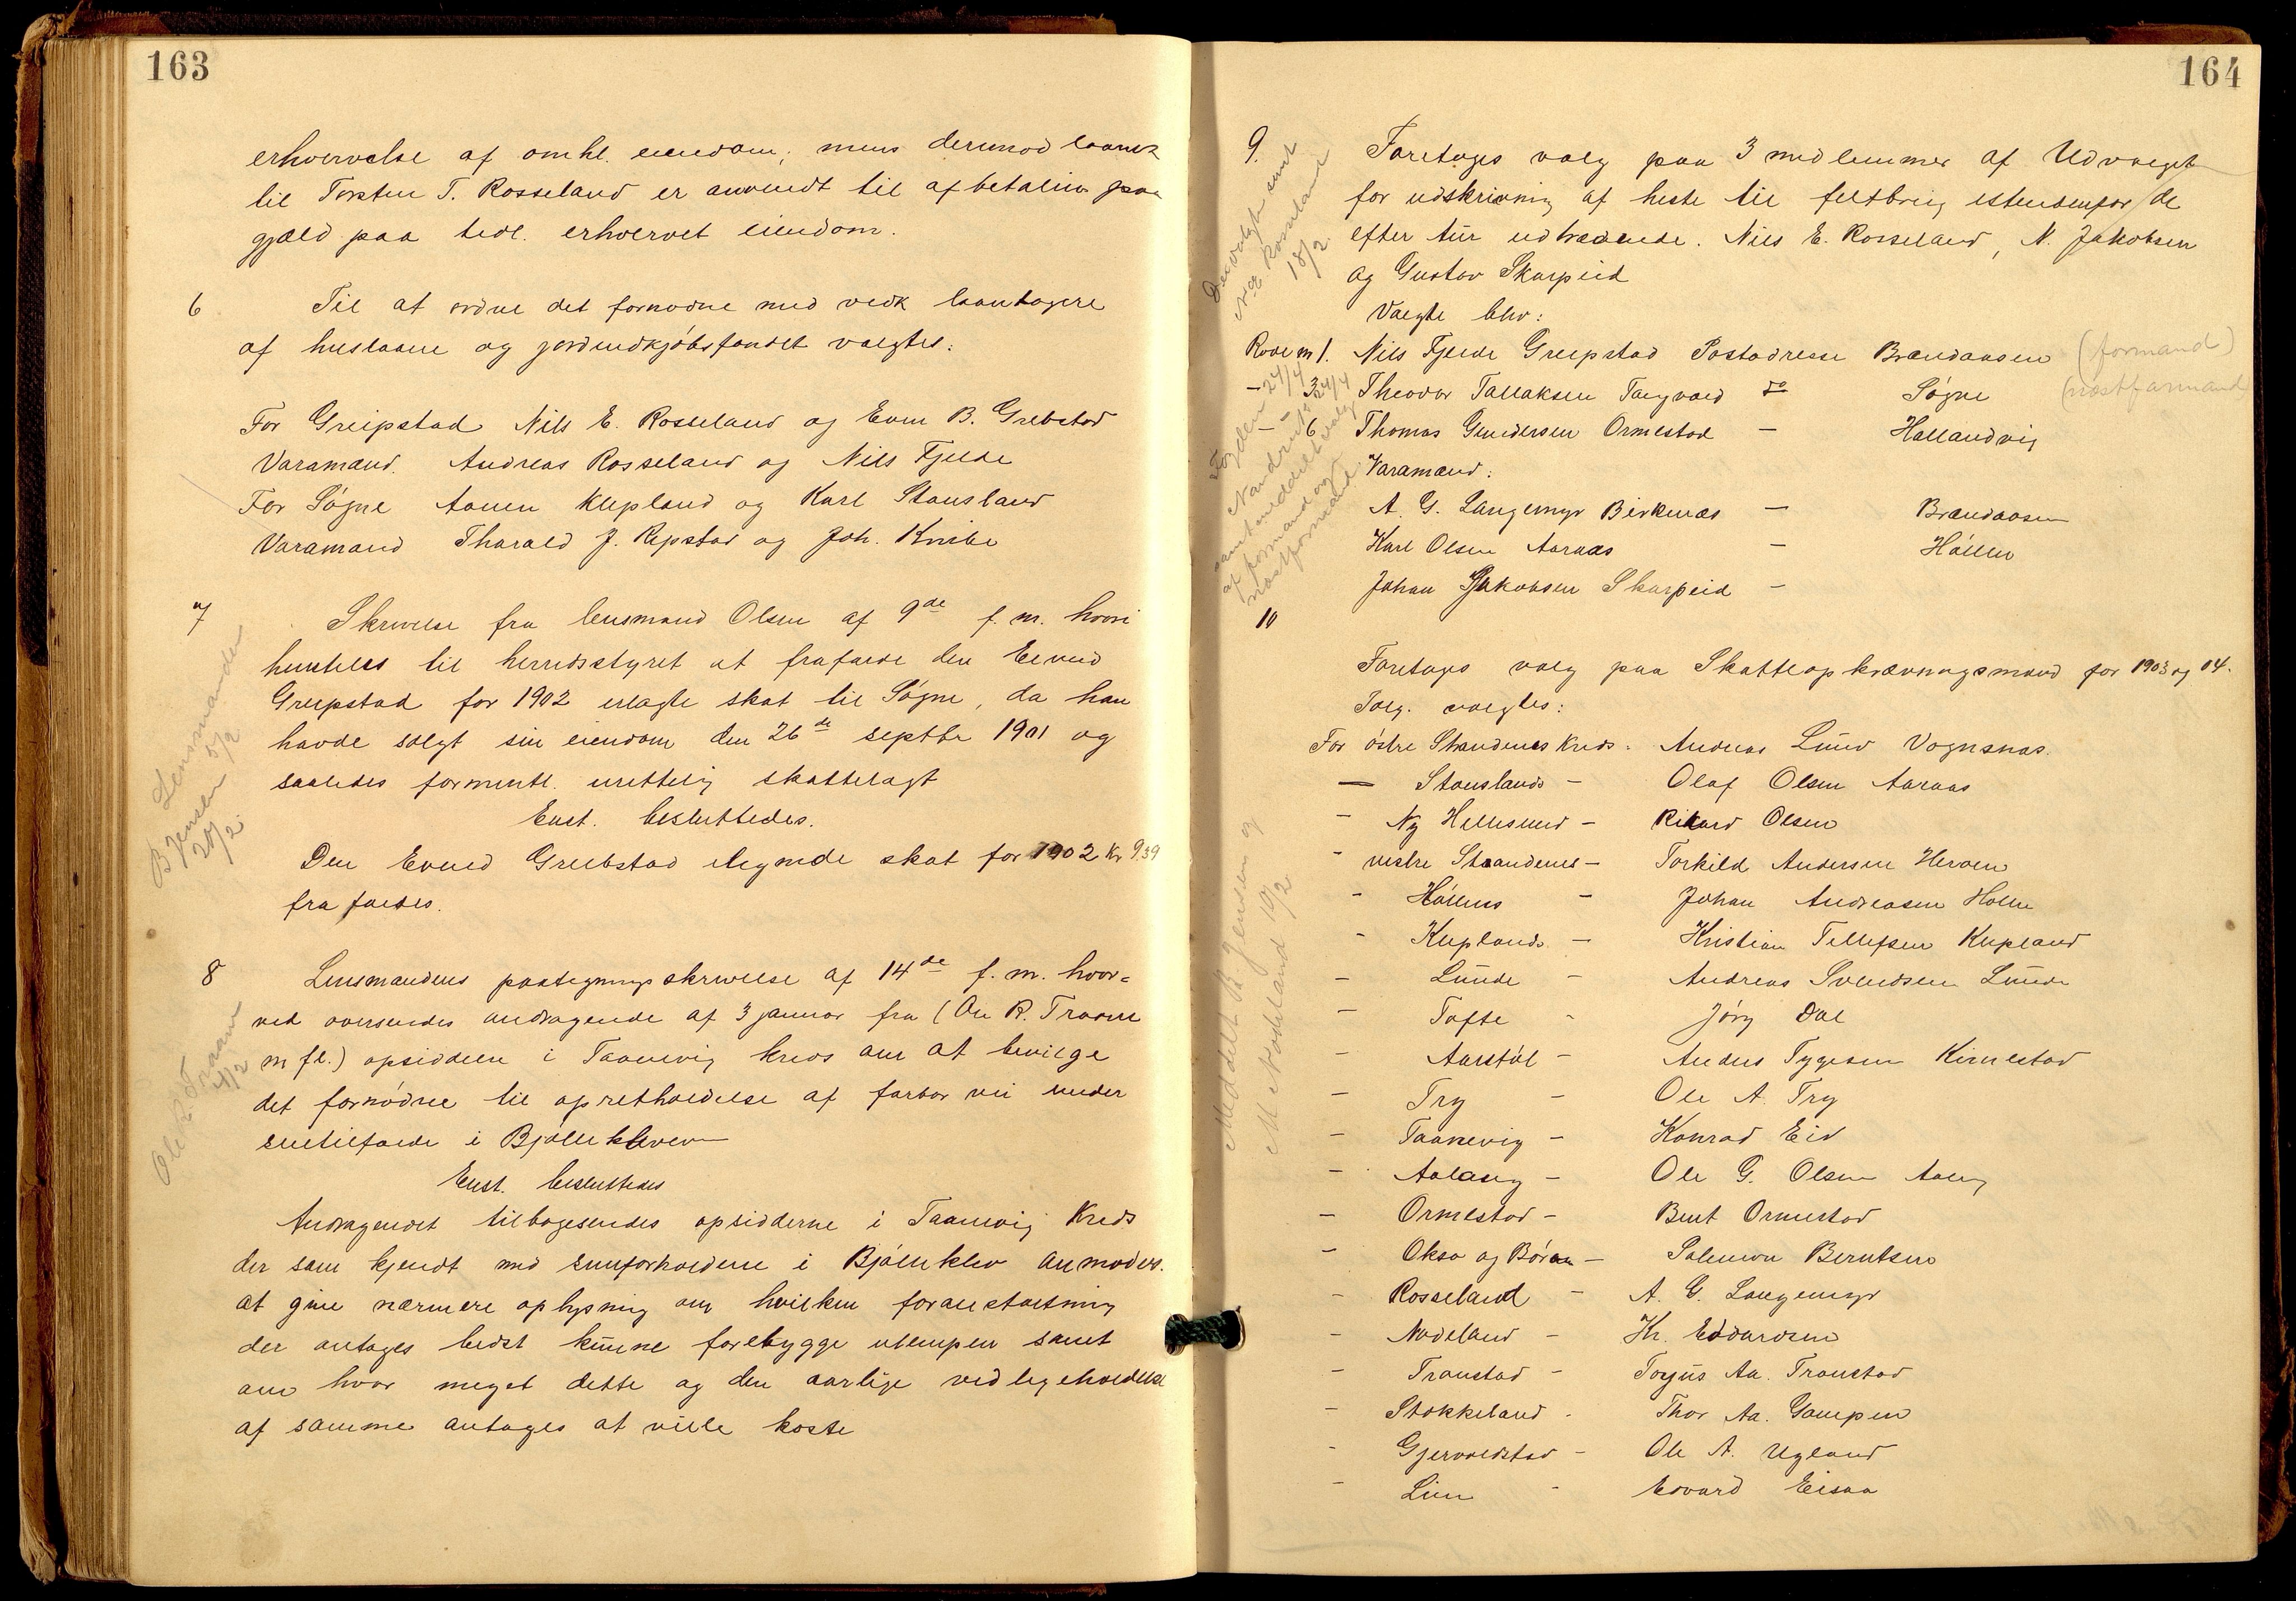 163
erhvervelse af omhl. eiendom; mens derimod laanet
til Torsten T. Rosseland er anvendt til afbetaling paa
gjæld paa tidl. erhvervet eiendom.
6 Til at ordne det fornødne med vedk laantagere
af huslaane og jordindkjøbsfondet valgtes:
For Greipstad Nils E. Rosseland og Even B. Grebstad
Varamænd. Andreas Rosseland og Nils Fjelde
For Søgne Aanen Klepland og Karl Stausland
Varamænd Tharald J. Repstad og Joh. Knibe
7 Skrivelse fra lensmand Olsen af 9de f. m. hvori
henstilles til herredsstyret at frafalde den Eivind
Greipstad for 1902 ilagte skat til Søgne, da han
havde solgt sin eiendom den 26de septbr 1901 og
saaledes formentl. urettelig skattelagt
Enst. besluttedes.
Den Eivind Greibstad ilignede skat for 1902 kr 9.39
frafaldes.
Lensmanden 5/2
B Jensen 20/2
8 Lensmandens paategningsskrivelse af 14de f. m. hvor-
ved oversendes andragende af 3 januar fra (Ole R. Traane
m fl.) opsiddere i Taanevig kreds om at bevilge
det fornødne til opretholdelse af farbar vei under
snetilfælde i Bjølnkleven
Enst. besluttedes
Ole R Traane 4/2
Andragendet tilbagesendes opsidderne i Taanevig Kreds
der som kjendt med sneforholdene i Bjølnklev anmodes
at give nærmere oplysning om hvilken foranstaltning
der antages bedst kunne forebygge ulempen samt
om hvor meget dette og den aarlige vedligeholdelse
af samme antages at ville koste
164
9. Foretages valg paa 3 medlemmer af Udvalget
for udskrivning af heste til feltbrug istedenfor de
efter tur udtrædende. Nils E. Rosseland, N. Jakobsen
og Gustav Skarpeid
Valgte blev:
Rode no 1. Nils Fjelde Greipstad Postadresse Brændaasen (formand)
- 3 Theodor Tallaksen Tangvald do Søgne (næstformand
- 6 Thomas Gundersen Ormestad - Hallandvig
Varamænd:
A. G. Langemyr Birkenæs - Brændaasen
Karl Olsen Aaraas - Høllen
Johan Jakobsen Skarpeid -
N E Rosseland 18/2
samt meddelt valg
af formand og
næstformand
10
Foretages valg paa Skatteopkrævningsmænd for 1903 og 04.
valgtes:
For østre Strandenes Kreds. Andreas Lund Vognsnæs.
- Stauslands - Olaf Olsen Aaraas
- Ny Hellesund - Rikard Olsen
- vestre Strandenes - Torkild Andersen Herøen
- Høllens - Johan Andreasen Holen
- Kleplands - Kristian Tellefsen Klepland
- Lunde - Andreas Svendsen Lunde
- Tofte - Jørg Dal
- Aarstøl - Anders Tygesen Kirnestad
- Try - Ole A. Try
- Taanevig - Konrad Eid
- Aalaug - Ole G. Olsen
- Ormestad - Bent Ormestad
- Oksø og Børøen - Salomon Berntsen
- Rosseland - A. G. Langemyr
- Nodeland - Kr. Edvardsen
- Tronstad - Torjus Aa. Tronstad
- Stokkeland - Thor Aa. Gampen
- Gjervoldstad - Ole A. Ugland
- Lien - Edvard Eisaa
Meddelt B. Jensen og
M Nodeland 10/2